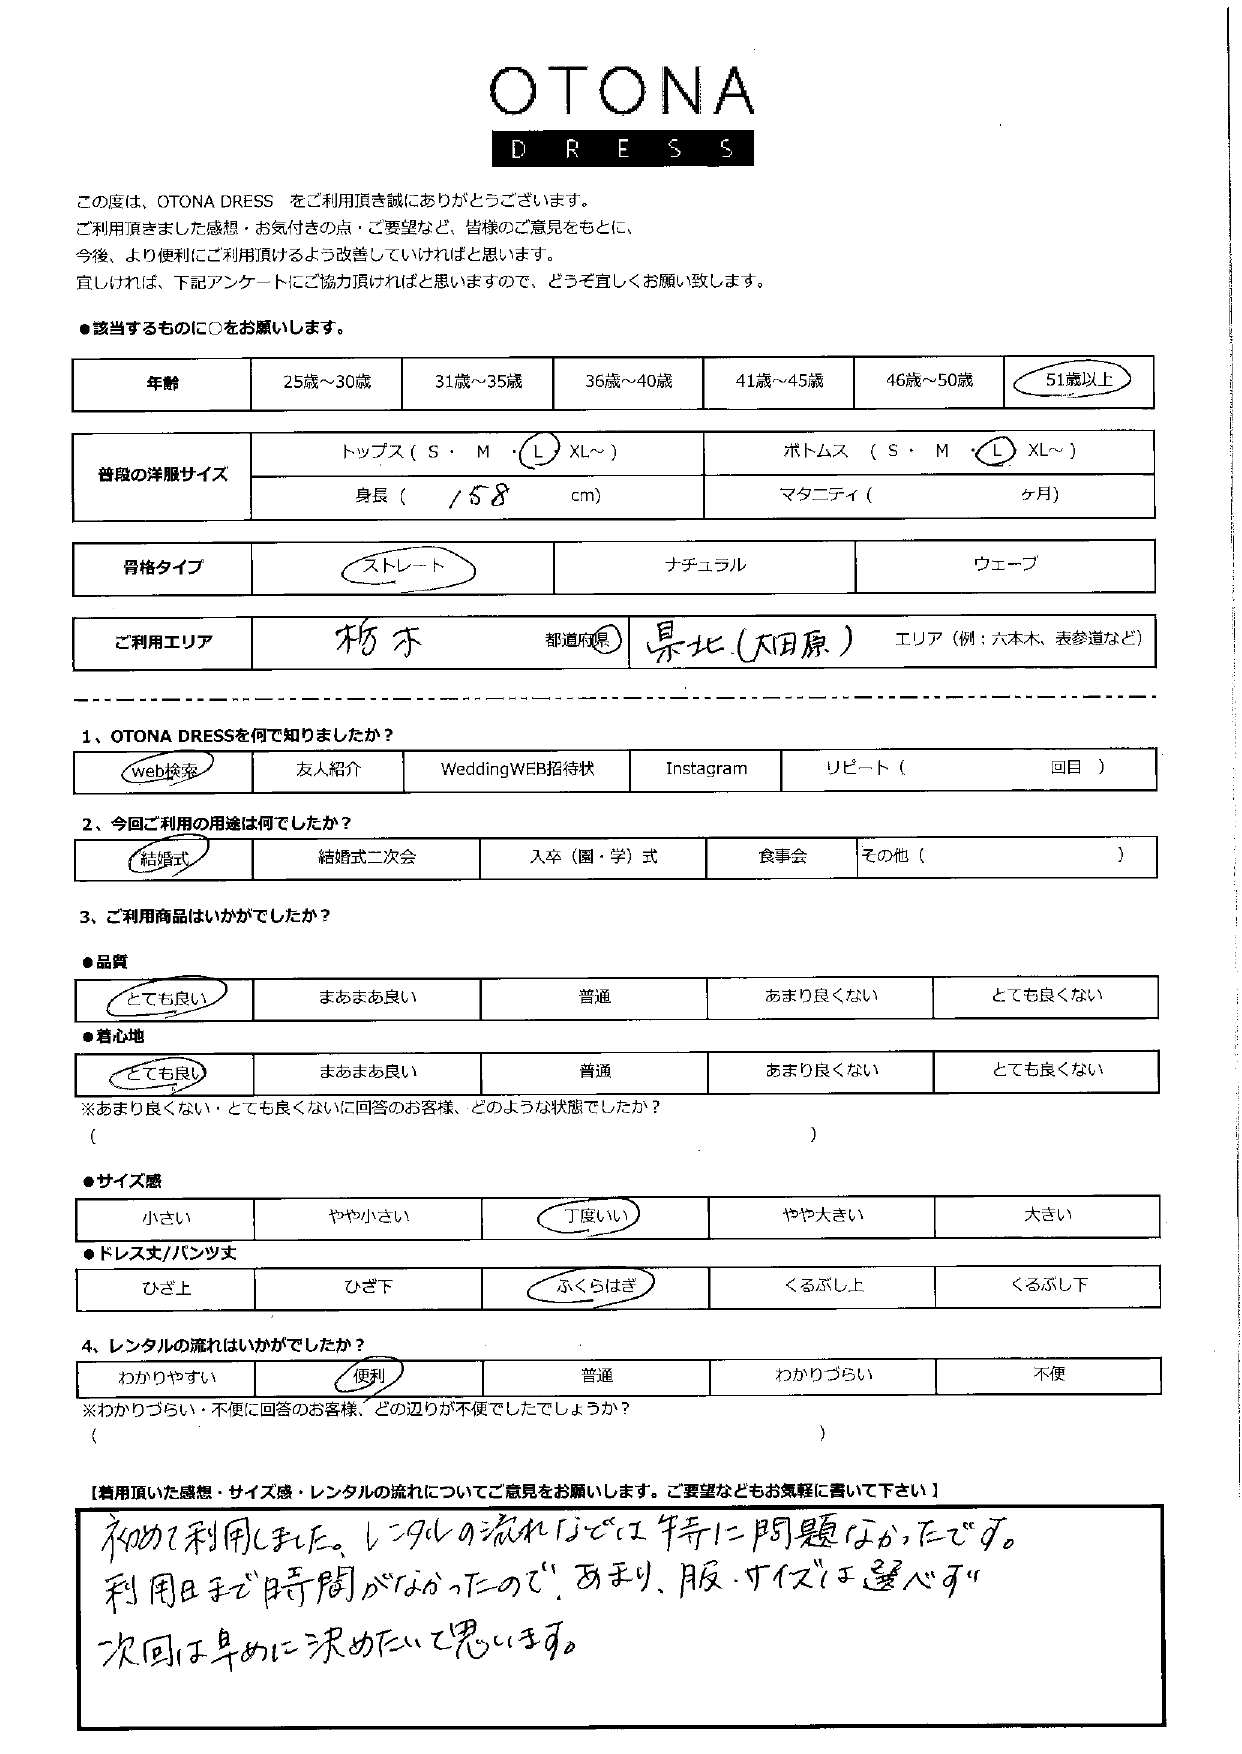 OTONA
DRESS
この度は、OTONA DRESS をご利用頂き誠にありがとうございます。
ご利用頂きました感想・お気付きの点・ご要望など、皆様のご意見をもとに、
今後、より便利にご利用頂けるよう改善していければと思います。
宜しければ、下記アンケートにご協力頂ければと思いますので、どうぞ宜しくお願い致します。
●該当するものに○をお願いします。
年齢 25歳～30歳 31歳～35歳 36歳～40歳 41歳～45歳 46歳～50歳 51歳以上
普段の洋服サイズ トップス ( S ・ M ・ L XL～ ) ボトムス ( S ・ M ・ L XL～ )
身長 ( 158 cm) マタニティ ( ヶ月)
骨格タイプ ストレート ナチュラル ウェーブ
ご利用エリア 栃木 都道府県 県北(大田原) エリア（例：六本木、表参道など）
1、OTONA DRESSを何で知りましたか？
web検索 友人紹介 WeddingWEB招待状 Instagram リピート ( 回目 )
2、今回ご利用の用途は何でしたか？
結婚式 結婚式二次会 入卒（園・学）式 食事会 その他 ( )
3、ご利用商品はいかがでしたか？
●品質
とても良い まあまあ良い 普通 あまり良くない とても良くない
●着心地
とても良い まあまあ良い 普通 あまり良くない とても良くない
※あまり良くない・とても良くないに回答のお客様、どのような状態でしたか？
( )
●サイズ感
小さい やや小さい 丁度いい やや大きい 大きい
●ドレス丈/パンツ丈
ひざ上 ひざ下 ふくらはぎ くるぶし上 くるぶし下
4、レンタルの流れはいかがでしたか？
わかりやすい 便利 普通 わかりづらい 不便
※わかりづらい・不便に回答のお客様、どの辺りが不便でしたでしょうか？
( )
【着用頂いた感想・サイズ感・レンタルの流れについてご意見をお願いします。ご要望などもお気軽に書いて下さい】
初めて利用しました。レンタルの流れなどは特に問題なかったです。
利用日まで時間がなかったので、あまり、服・サイズは選べず
次回は早めに決めたいて思います。